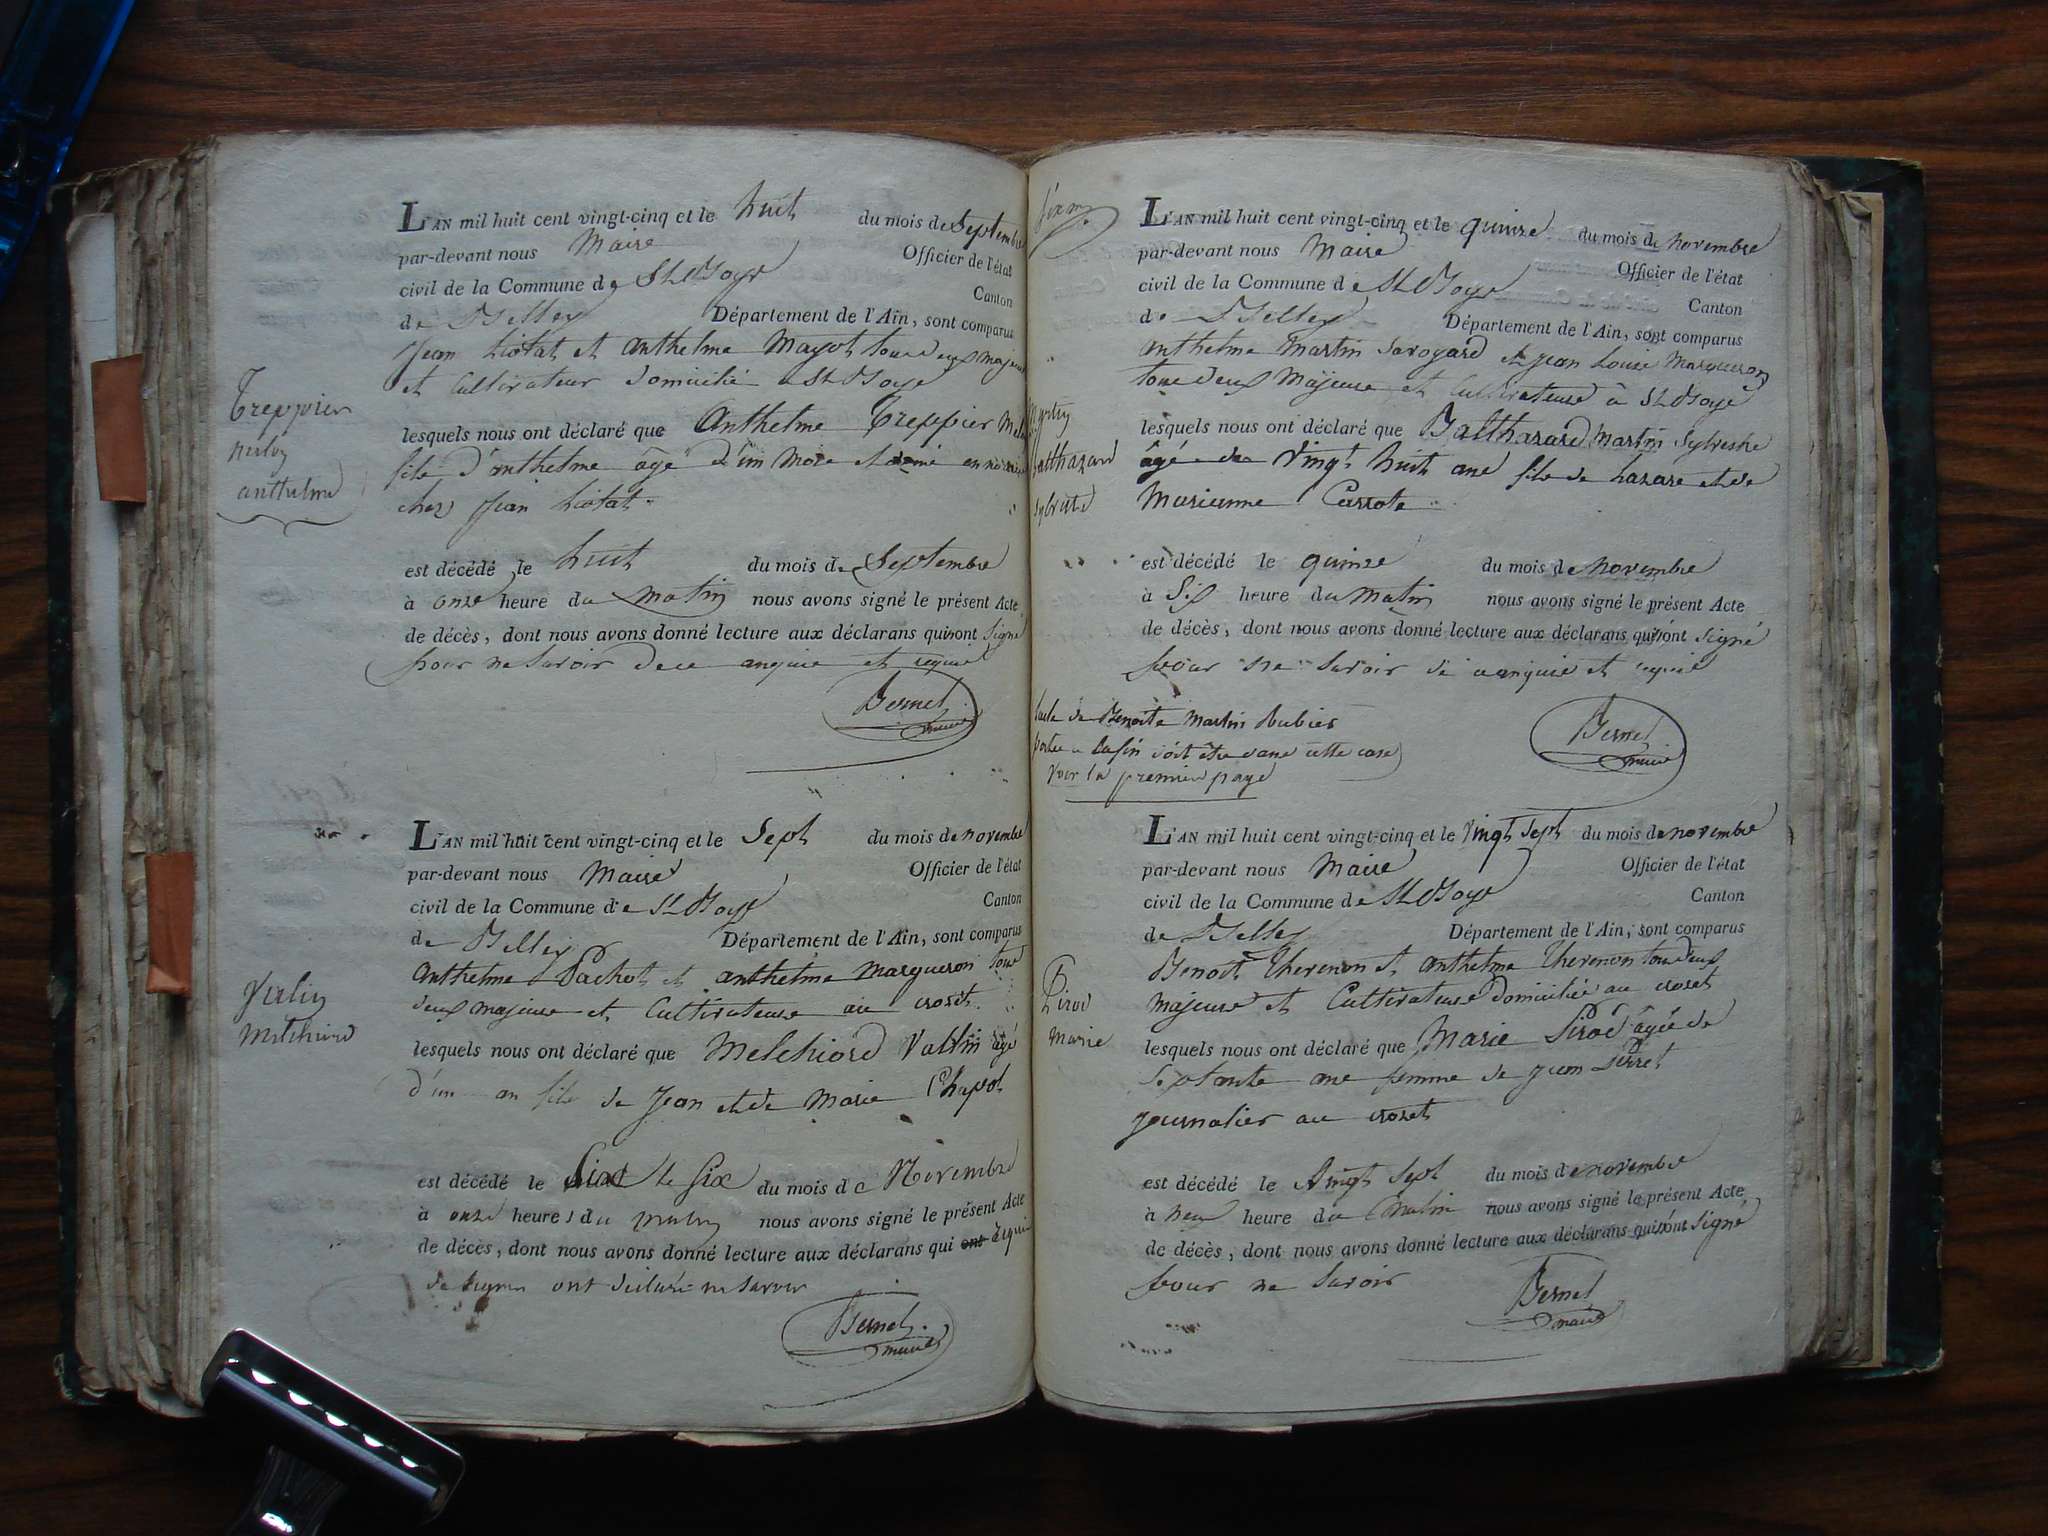 L'AN mil huit cent vingt-cinq et le huit du mois de Septembre
par-devant nous Maire Officier de l'état
civil de la Commune de St Boys Canton
de Belley Département de l'Ain, sont comparus
Jean Liotat et anthelme Mayot tous deux majeurs
et Cultivateur domicilié a St Boys
lesquels nous ont déclaré que Anthelme Treppier
fils d'anthelme âgé d'un Mois et demi en
chez Jean Liotat
Treppier
anthelme
est décédé le huit du mois de Septembre
à onze heure du Matin nous avons signé le présent Acte
de décès, dont nous avons donné lecture aux déclarans qui ont Signé
pour ne Savoir de ce enquis et requis
Bernet
maire
L'AN mil huit cent vingt-cinq et le Sept du mois de novembre
par-devant nous Maire Officier de l'état
civil de la Commune de St Boys Canton
de Belley Département de l'Ain, sont comparus
anthelme Pachot et anthelme Margueron tous
deux majeurs et Cultivateurs au crozet
lesquels nous ont déclaré que Melchiord Vallin âgé
d'un an fils de Jean et de Marie Chapot
Melchiord
est décédé le Six le Six du mois de Novembre
à onze heures du matin nous avons signé le présent Acte
de décès, dont nous avons donné lecture aux déclarans qui ont requis
de signer ont déclaré ne savoir
Bernet
maire
L'AN mil huit cent vingt-cinq et le quinze du mois de novembre
par-devant nous Maire Officier de l'état
civil de la Commune de St Boys Canton
de Belley Département de l'Ain, sont comparus
anthelme Martin Savoyard et Jean Louis Margueron
tous deux Majeurs et Cultivateurs à St Boys
lesquels nous ont déclaré que Balthazard Martin Sylvestre
âgé de Vingt huit ans fils de Lazare et de
Marianne Carrote
Martin
Balthazard
Sylvestre
est décédé le quinze du mois de novembre
à Six heure du Matin nous avons signé le présent Acte
de décès, dont nous avons donné lecture aux déclarans qui ont signé
pour ne Savoir de ce enquis et requis
Bernet
maire
l'acte de Benoite Martin Rubier
portée a la fin doit être dans cette case
Voir la premiere page
L'AN mil huit cent vingt-cinq et le Vingt Sept du mois de novembre
par-devant nous Maire Officier de l'état
civil de la Commune de St Boys Canton
de Belley Département de l'Ain, sont comparus
Benoit Thevenon et anthelme Thevenon tous deux
majeurs et Cultivateurs domicilié au crozet
lesquels nous ont déclaré que Marie Pirod âgée de
Septante ans femme de Jean Perret
journalier au crozet
Pirod
marie
est décédé le Vingt Sept du mois de novembre
à neuf heure du Matin nous avons signé le présent Acte
de décès, dont nous avons donné lecture aux déclarans qui ont signé
pour ne Savoir
Bernet
maire